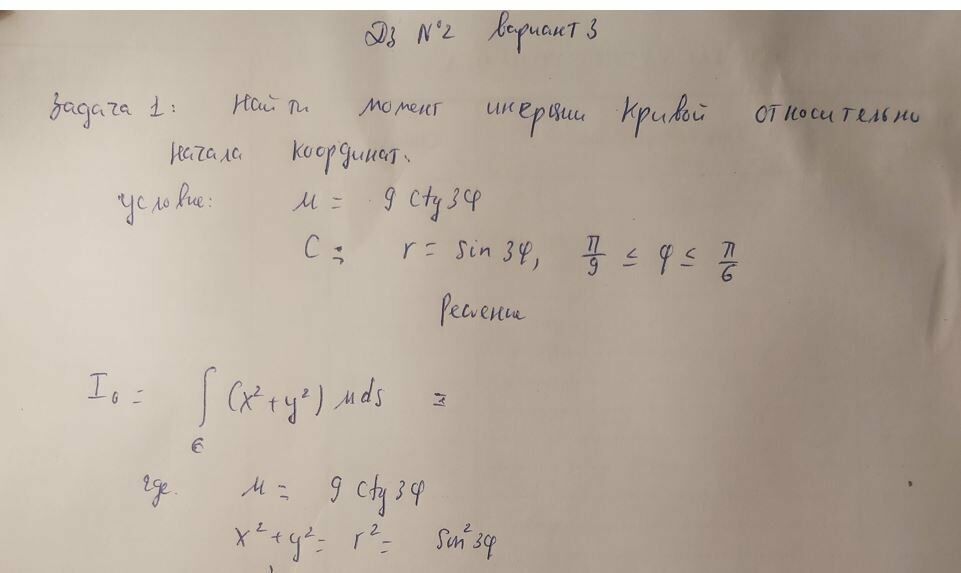 ДЗ №2 вариант 3
Задача 1: Найти момент инерции кривой относительно
начала координат.
условие: μ = 9 ctg 3φ
C: r = sin 3φ, π/9 ≤ φ ≤ π/6
Решение
I₀ = ∫ (x² + y²) μ ds =
C
где μ = 9 ctg 3φ
x² + y² = r² = sin² 3φ